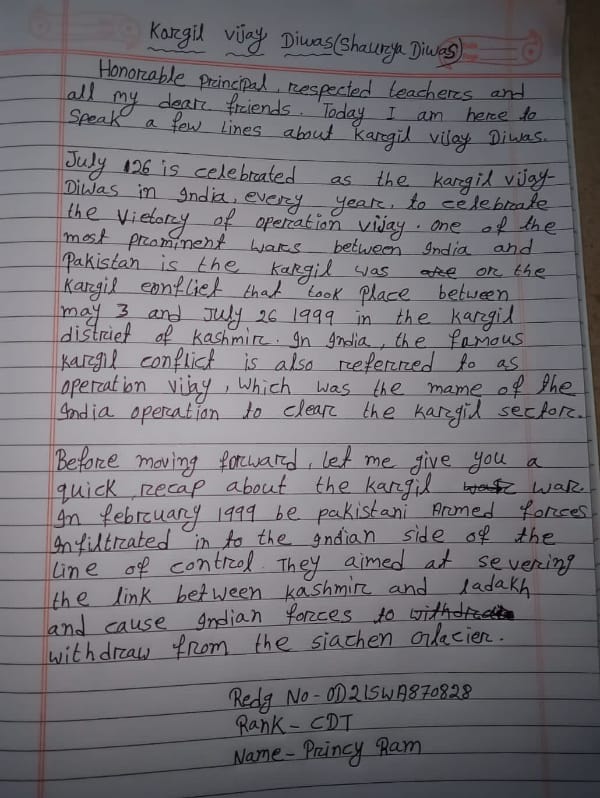 Kargil vijay Diwas(Shaurya Diwas)
Honorable principal, respected teachers and
all my dear friends. Today I am here to
Speak a few lines about Kargil vijay Diwas.
July 26 is celebrated as the Kargil vijay
Diwas in India, every year, to celebrate
the Victory of operation vijay. one of the
most prominent wars between India and
Pakistan is the Kargil was are or the
Kargil conflict that took place between
may 3 and July 26 1999 in the Kargil
district of Kashmir. In India, the famous
Kargil conflict is also referred to as
operation vijay, which was the mame of the
India operation to clear the Kargil sector.
Before moving forward, let me give you a
quick, recap about the Kargil war.
In february 1999 be pakistani Armed forces
Infiltrated in to the Indian side of the
Line of control. They aimed at severing
the link between Kashmir and ladakh
and cause Indian forces to withdraw
withdraw from the siachen Glacier.
Redg No-OD21SWA870828
Rank - CDT
Name- Princy Ram